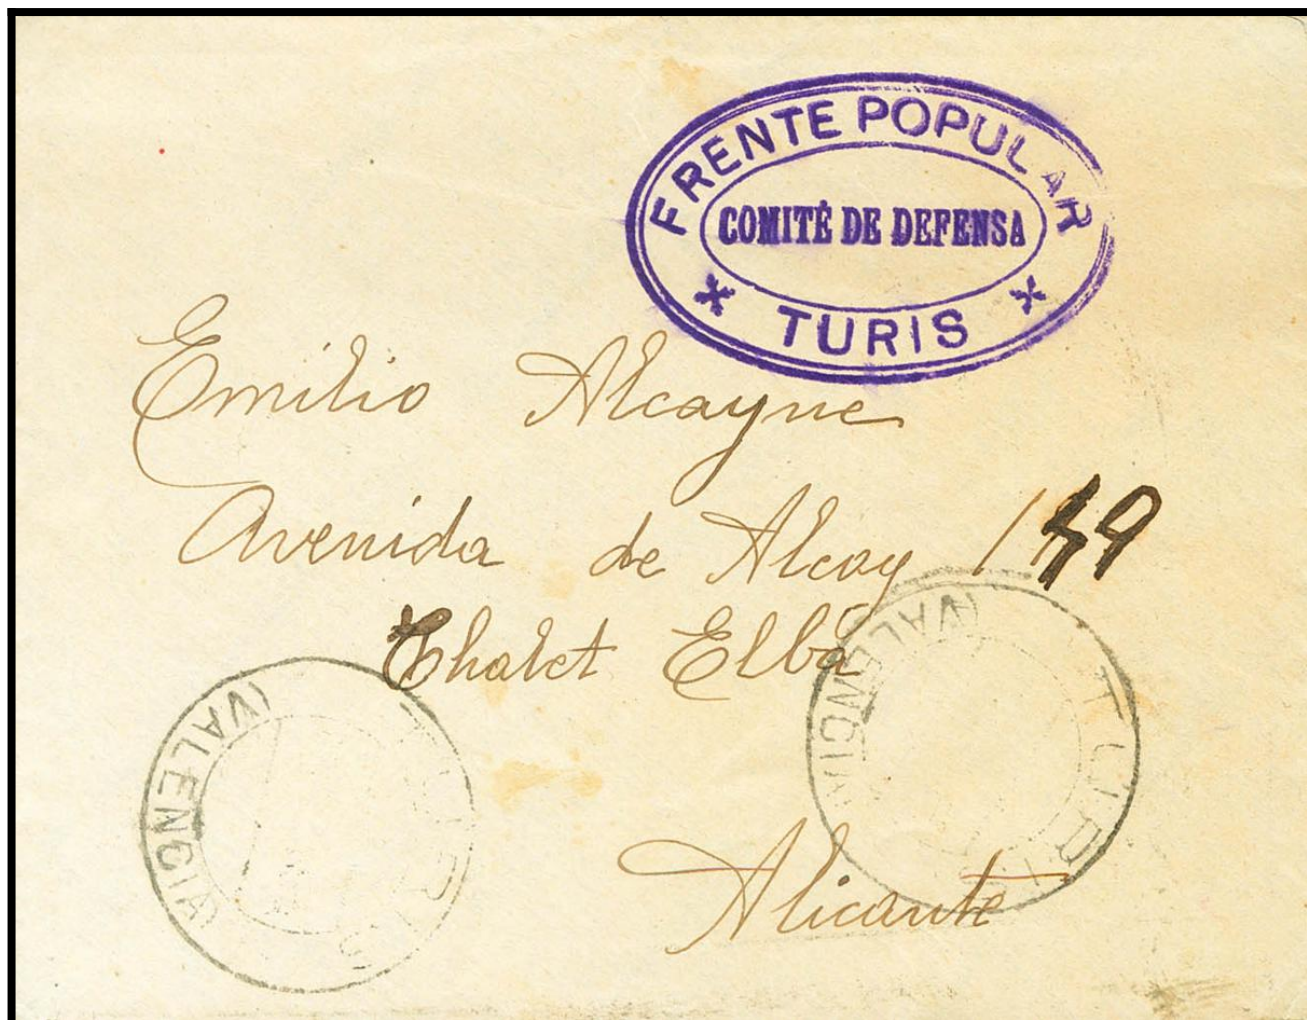 FRENTE POPULAR
COMITÉ DE DEFENSA
TURIS
Emilio Alcayne
Avenida de Alcoy
Chalet Elba
(VALENCIA) TURIS
(VALENCIA) TURIS
Alicante